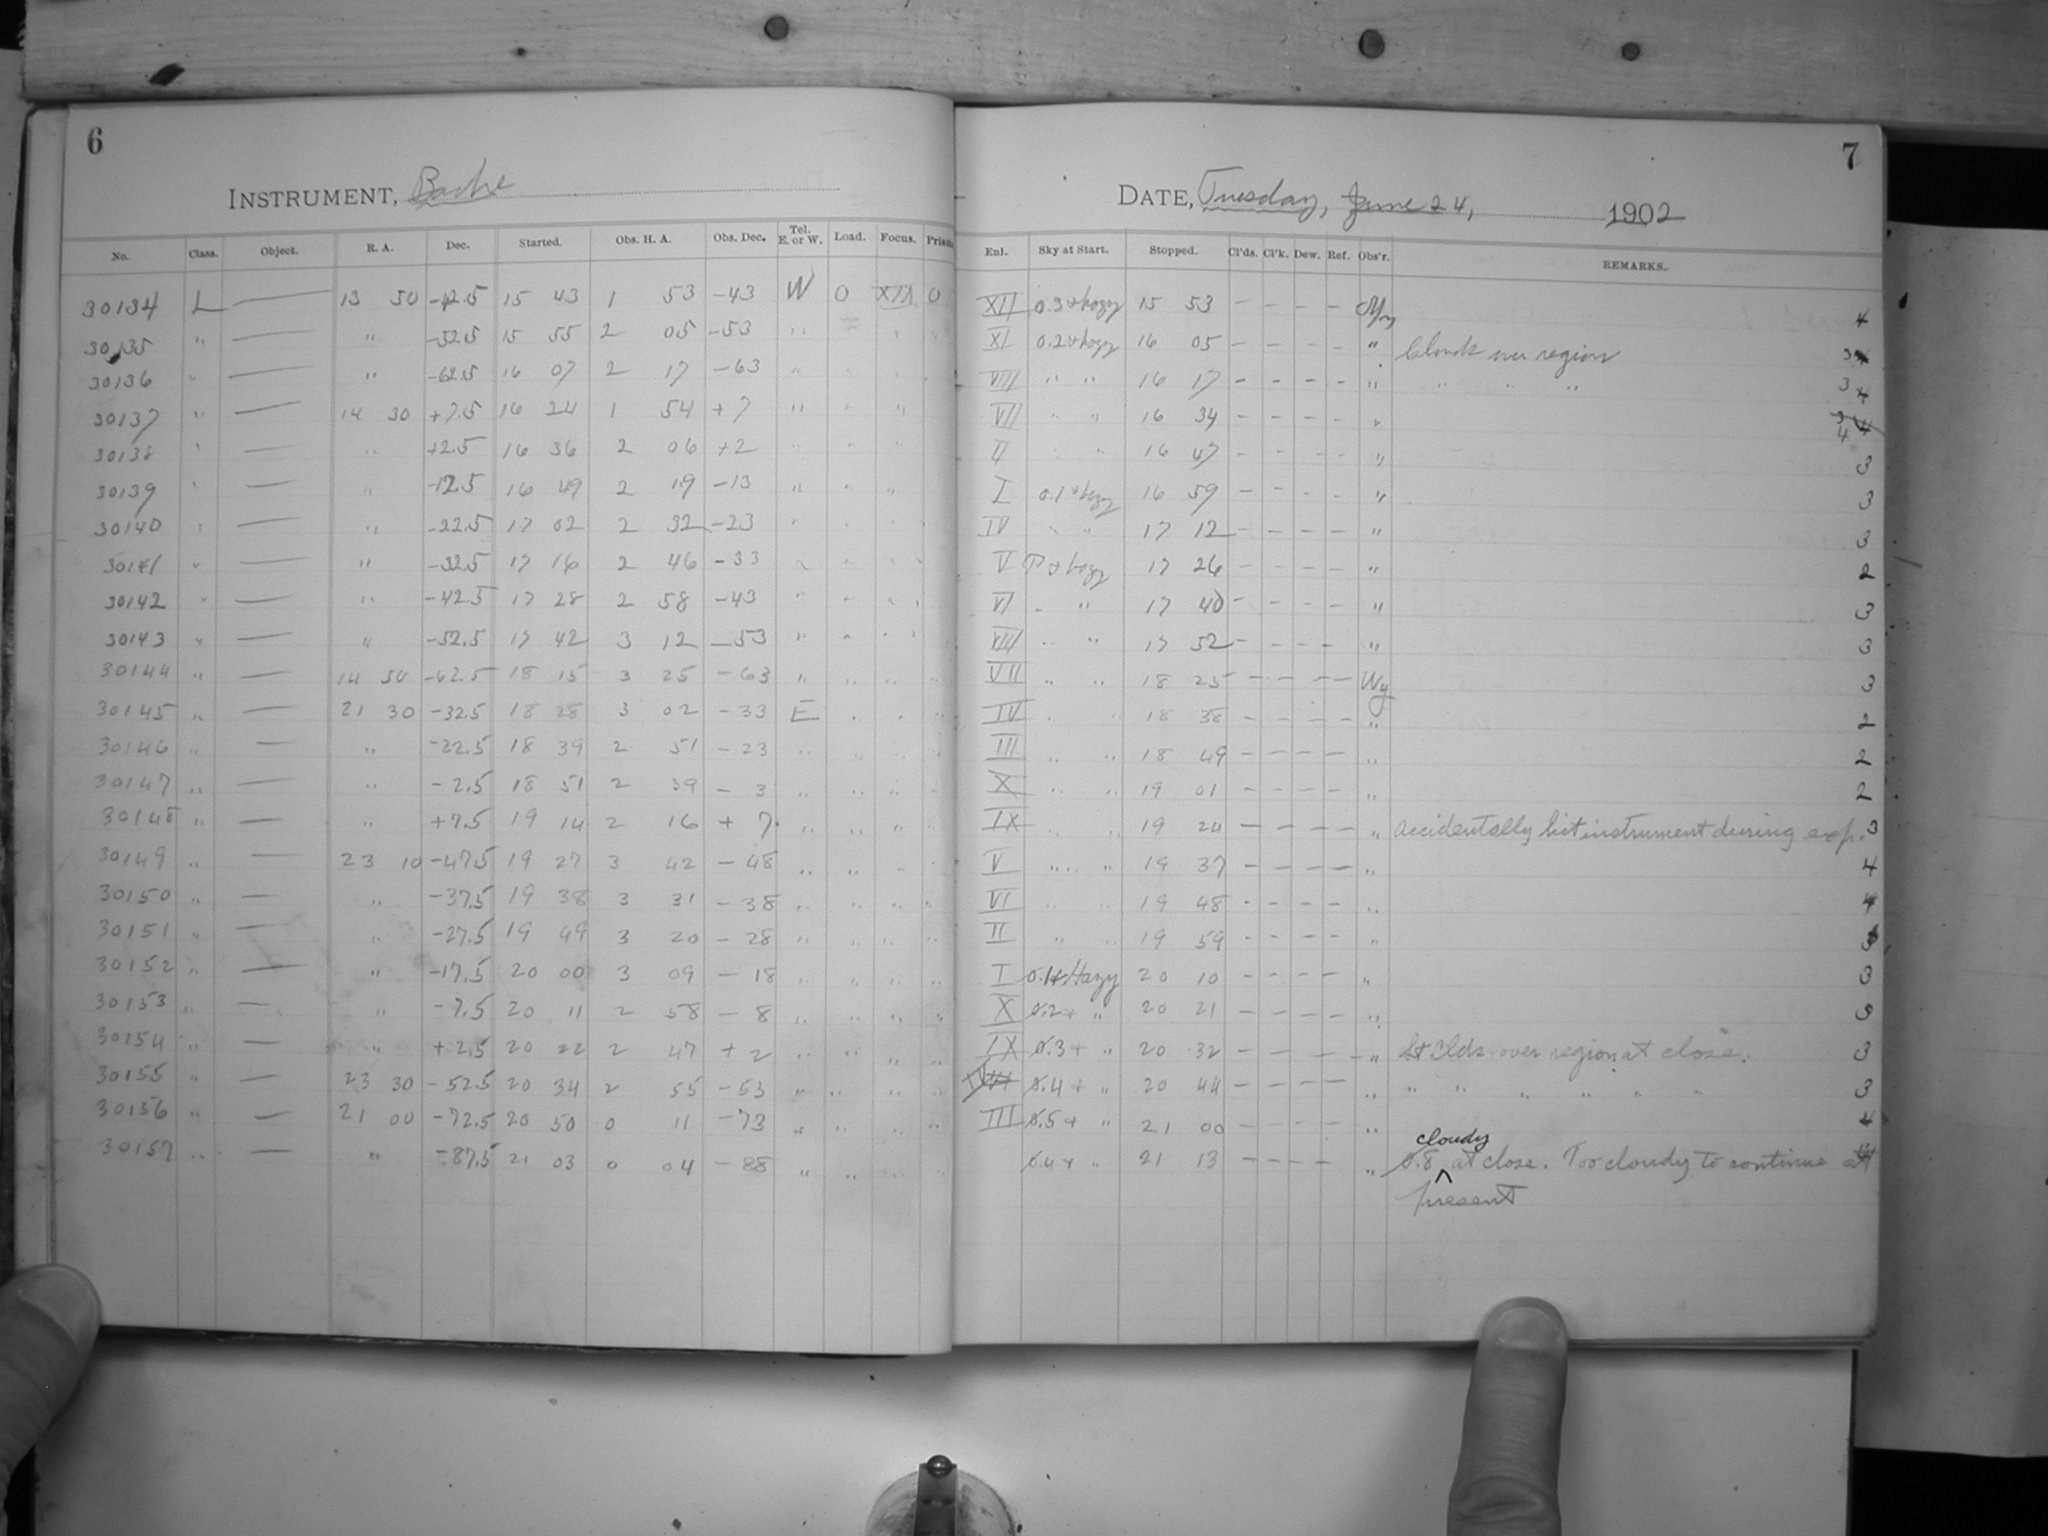 6
INSTRUMENT, Bache
No. Class. Object. R. A. Dec. Started. Obs. H. A. Obs. Dec. Tel. E. or W. Load. Focus. Prism
30134 L — 13 50 -42.5 15 43 1 53 -43 W 0 XII 0
30135 " — " -52.5 15 55 2 05 -53 " " "
30136 " — " -62.5 16 07 2 17 -63 " " " "
30137 " — 14 30 +7.5 16 24 1 54 +7 " " "
30138 " — " +2.5 16 36 2 06 +2 " " "
30139 " — " -12.5 16 49 2 19 -13 " " "
30140 " — " -22.5 17 02 2 32 -23 " " " "
30141 " — " -32.5 17 16 2 46 -33 " " " "
30142 " — " -42.5 17 28 2 58 -43 " " " "
30143 " — " -52.5 17 42 3 12 -53 " " " "
30144 " — 14 30 -62.5 18 15 3 25 -63 " " " "
30145 " — 21 30 -32.5 18 28 3 02 -33 E " " "
30146 " — " -22.5 18 39 2 51 -23 " " " "
30147 " — " -2.5 18 51 2 39 -3 " " " "
30148 " — " +7.5 19 14 2 16 +7 " " " "
30149 " — 23 10 -47.5 19 27 3 42 -48 " " " "
30150 " — " -37.5 19 38 3 31 -38 " " " "
30151 " — " -27.5 19 49 3 20 -28 " " " "
30152 " — " -17.5 20 00 3 09 -18 " " " "
30153 " — " -7.5 20 11 2 58 -8 " " " "
30154 " — " +2.5 20 22 2 47 +2 " " " "
30155 " — 23 30 -52.5 20 34 2 55 -53 " " " "
30156 " — 21 00 -72.5 20 50 0 11 -73 " " " "
30157 " — " -87.5 21 03 0 04 -88 " " " "
7
DATE, Tuesday, June 24, 1902
Enl. Sky at Start. Stopped. Cl'ds. Cl'k. Dew. Ref. Obs'r. REMARKS.
XII 0.3 + hazy 15 53 — — — — 4
XI 0.2 + hazy 16 05 — — — — " Clouds over region 3
VIII " " 16 17 — — — — " " " " 3
VII " " 16 34 — — — — " 4
II " " 16 47 — — — — " 3
I 0.1 + hazy 16 59 — — — — " 3
IV " " 17 12 — — — — " 3
V + hazy 17 26 — — — — " 2
VI " " 17 40 — — — — " 3
XIII " " 17 52 — — — — " 3
VII " " 18 25 — — — — Wy 3
IV " " 18 38 — — — — " 2
III " " 18 49 — — — — " 2
X " " 19 01 — — — — " 2
IX " " 19 24 — — — — " accidentally hit instrument during exp. 3
V " " 19 37 — — — — " 4
VI " " 19 48 — — — — " 4
II " " 19 59 — — — — " 3
I 0.1+ Hazy 20 10 — — — — " 3
X 0.2+ " 20 21 — — — — " 3
IX 0.3+ " 20 32 — — — — " Lt Clds. over region at close. 3
0.4+ " 20 44 — — — — " " " " " " " 3
III 0.5+ " 21 00 — — — — " 4
0.4+ " 21 13 — — — — " 0.8 cloudy at close. Too cloudy to continue at
present